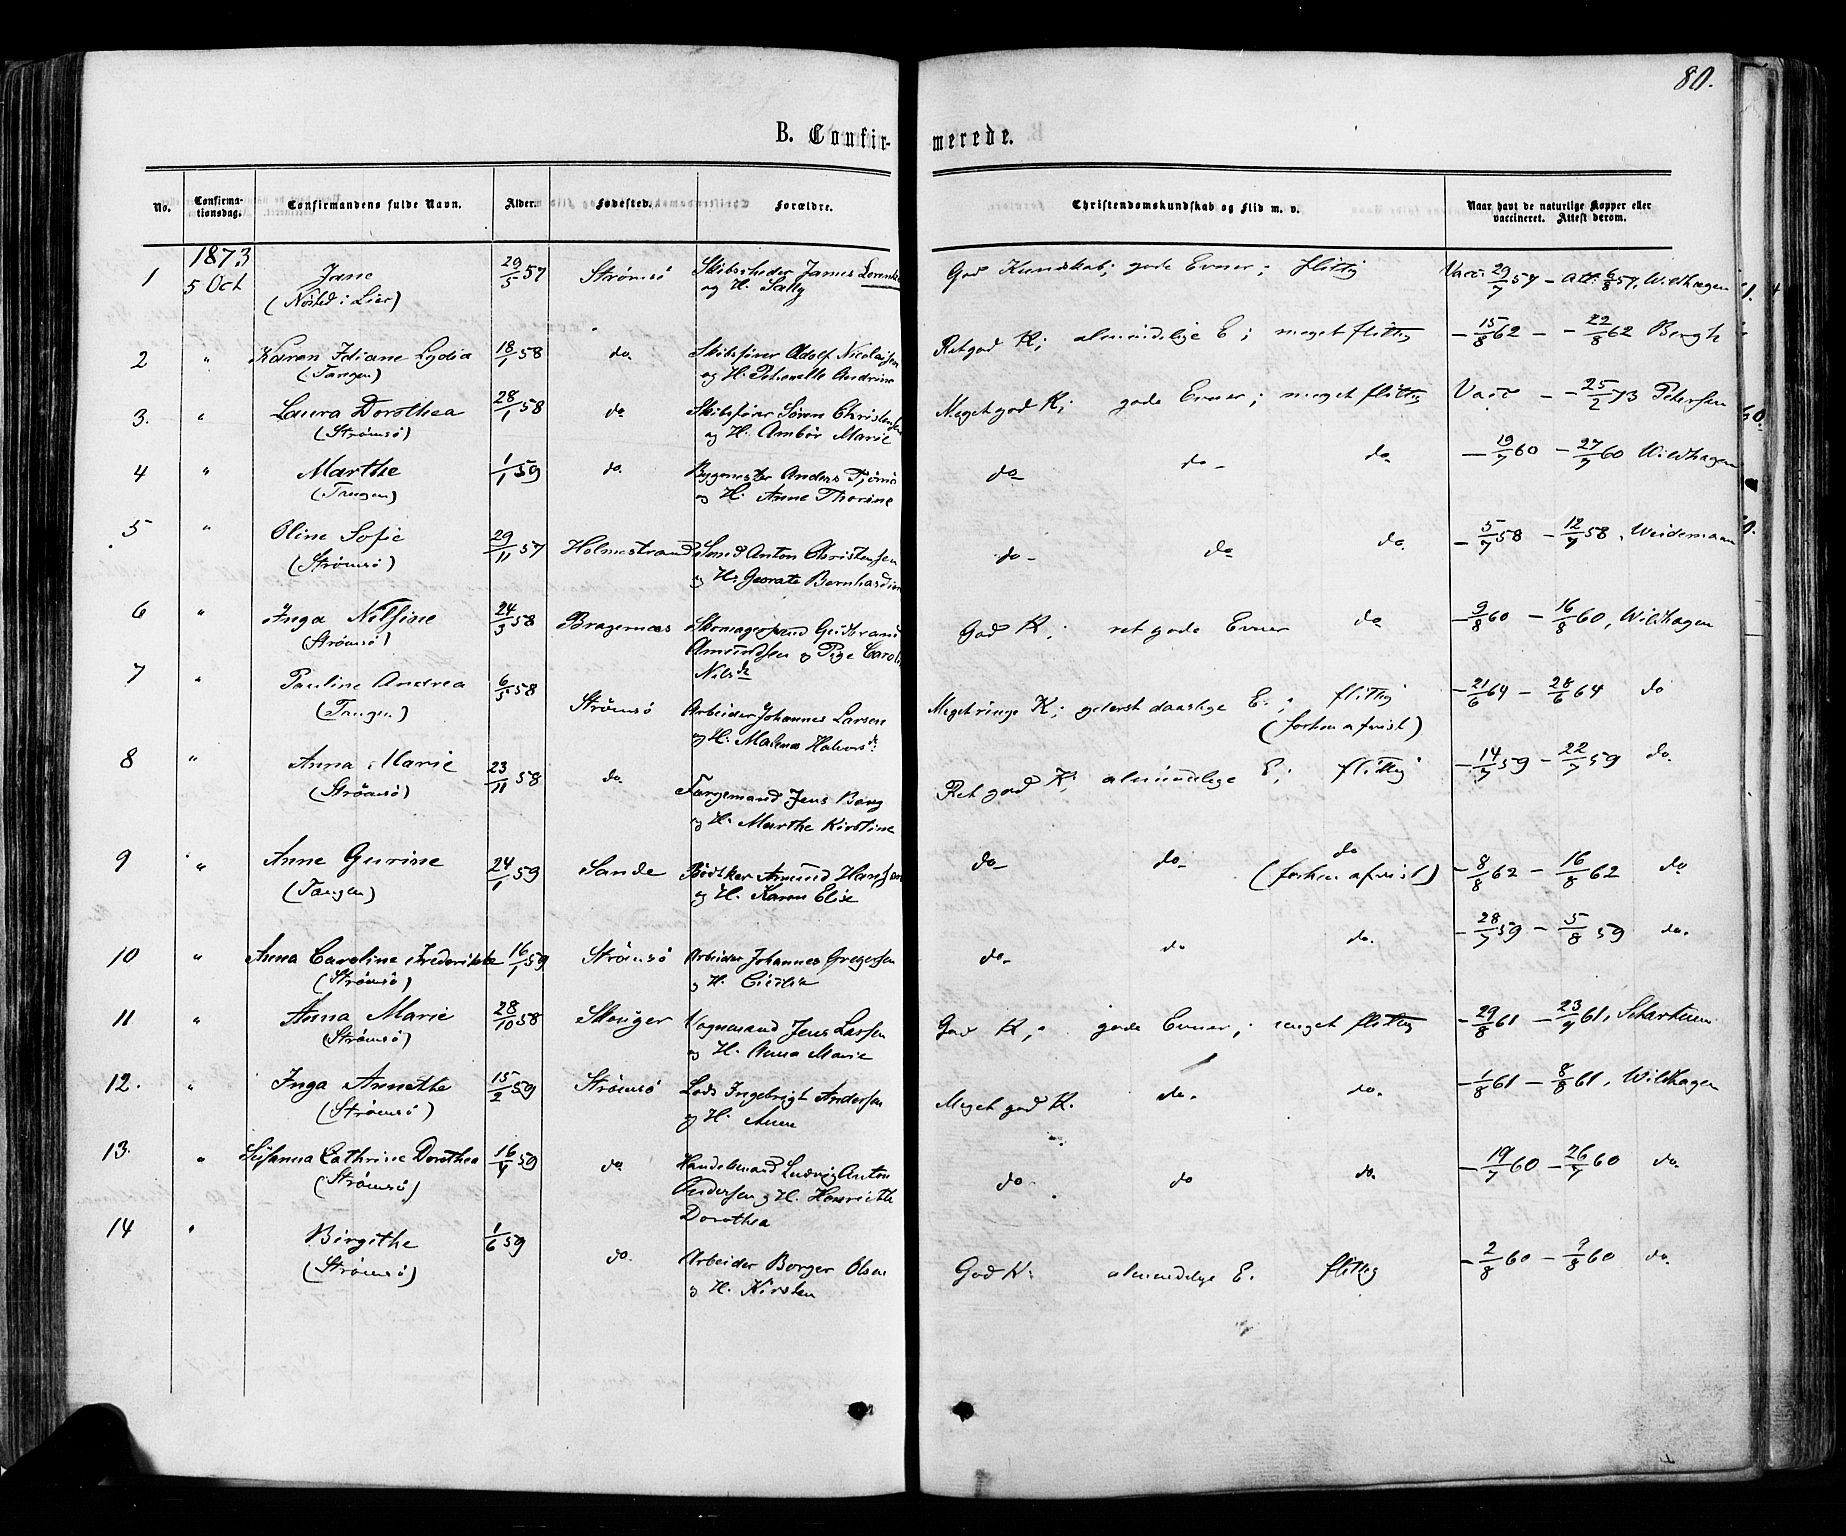 80.
B. Confir-
merede.
No.
Confirma-
tionsdag.
Confirmandens fulde Navn.
Alder.
Fødested.
Forældre.
Christendomskundskab og Flid m. v.
Naar havt de naturlige Kopper eller
vaccineret. Attest derom.
1873
1 5 Oct Jane 29/5 57 Strømsö Skibsrheder James God Kundskab; gode Evner; flittig Vacc 29/7 57 - Att. 6/8 57, Wildhagen
(Nösted i Lier) og H. Sally
2 " Karen Idiane Lydia 18/1 58 do. Skibsfører Adolf Nicolaisen Ret god K; almindelige E; meget flittig - 15/8 62 - - 22/8 62 Bergh
(Tangen) og H. Petronelle Andrine
3. " Laura Dorothea 28/1 58 do Skibsfører Søren Christensen Meget god K; gode Evner; meget flittig Vacc - - 25/2 73 Petersen
(Strømsö) og H. Ambör Marie
4 " Marthe 1/1 59 do. Bygmester Anders do do - do - 19/7 60 - 27/7 60 Wildhagen
(Tangen) og H. Anne Thorine
5 " Oline Sofie 29/11 57 Holmestrand Smed Anton Christensen do - do do. - 5/7 58 - 12/7 58, Weidemann
(Strømsö) og H. Georate Bernhardine
6 " Inga Nilsine 24/3 58 Bragernæs Skomagersvend Gudbrand God K; ret gode Evner do - 9/8 60 - 16/8 60, Wildhagen
(Strømsö) Amundsen og Pige Carol.
Nilsd.
7 " Pauline Andrea 6/5 58 Strömsö Arbeider Johannes Larsen Meget ringe K; yderst daarlige E.; flittig - 21/6 64 - 28/6 64 do
(Tangen) og H. Malena Halvorsd. (forhen afvist)
8 " Anna Marie 23/11 58 do. Færgemand Jens Bang Ret god K; almindelige E; flittig - 14/7 59 - 22/7 59 do.
(Strömsö) og H. Marthe Kirstine
9 " Anne Gurine 24/1 59 Sande Bödtker Amund Hansen do - do - do - 8/8 62 - 16/8 62 do
(Tangen) og H. Karen Elise (forhen afvist)
10 " Anna Caroline Frederikke 16/1 59 Strömsö Arbeider Johannes Gregersen do - do do. - 28/7 59 - 5/8 59 do.
(Strömsö) og H. Cicilia
11 " Anna Marie 28/10 58 Skouger Vognmand Jens Larsen God K; gode Evner; meget flittig - 29/8 61 - 23/9 61, Schartum
(Strömsö) og H. Anna Marie
12. " Inga Annette 15/2 59 Strömsö Lods Ingebrigt Andersen Meget god K. do. do. - 1/8 61 - 8/8 61, Wildhagen
(Strömsö) og H. Anne
13. " Susanna Cathrine Dorothea 16/4 59 do Handelsmand Ludvig Anton do do do. - 19/7 60 - 26/7 60 do.
(Strömsö) Andersen og H. Henriette
Dorothea
14 " Birgithe 1/6 59 do. Arbeider Borger Olsen God K; almindelige E. flittig - 2/8 60 - 9/8 60 do.
(Strömsö) og H. Kirsten